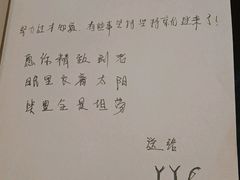 努力过才知道,有些事坚持坚持就过来了!
愿你精致到老
眼里长着太阳
笑里全是坦荡
送给
YYC